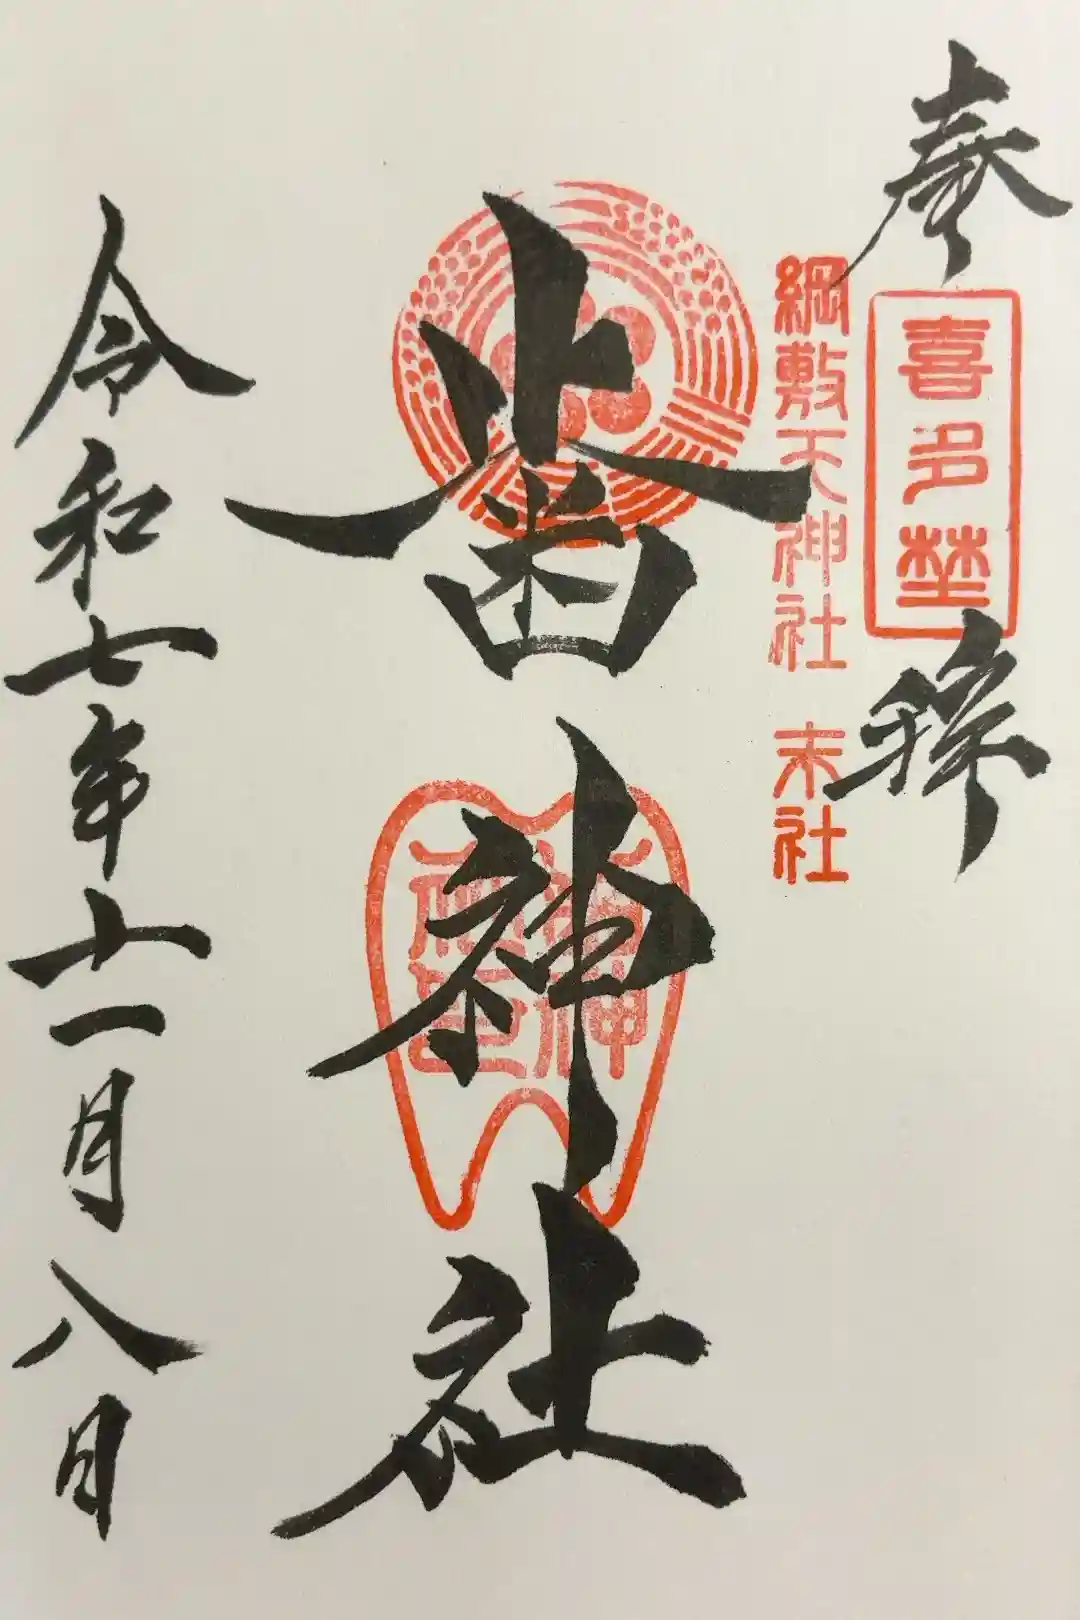 奉拝
喜多埜
綱敷天神社 末社
歯神社
歯神
社璽
令和七年十一月八日